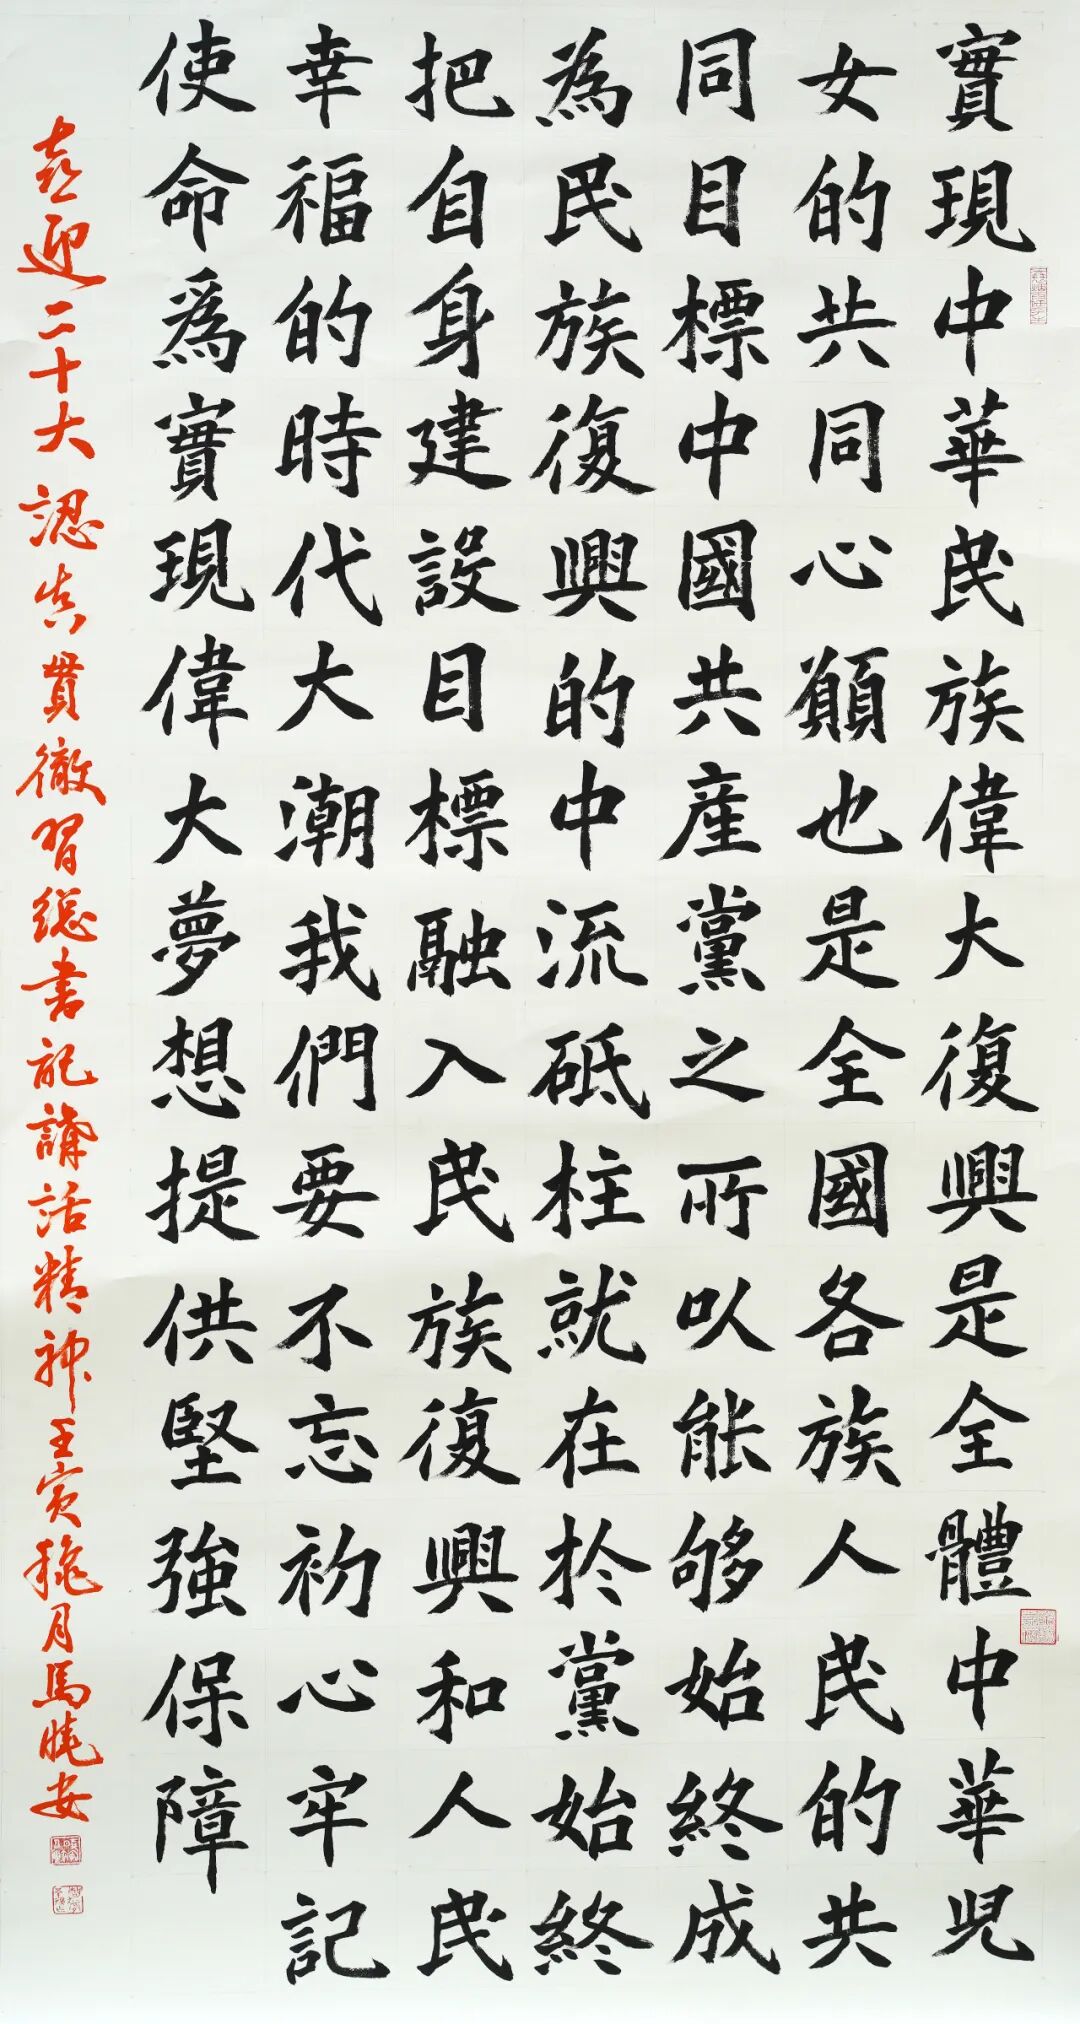 實現中華民族偉大復興是全體中華兒
女的共同心願也是全國各族人民的共
同目標中國共產黨之所以能够始終成
為民族復興的中流砥柱就在於黨始終
把自身建設目標融入民族復興和人民
幸福的時代大潮我們要不忘初心牢記
使命爲實現偉大夢想提供堅強保障
喜迎二十大認真貫徹習總書記講話精神壬寅穐月馬曉安